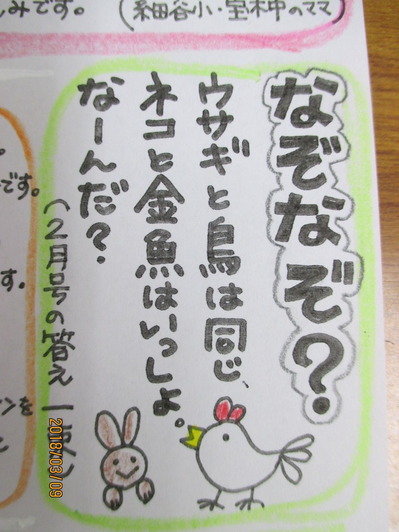 みです。 (細谷小・宝木中のママ)
なぞなぞ?
ウサギと鳥は同じ、
ネコと金魚はいっしょ。
なーんだ?
(2月号の答え
です。
す。
ンを
2018/03/09